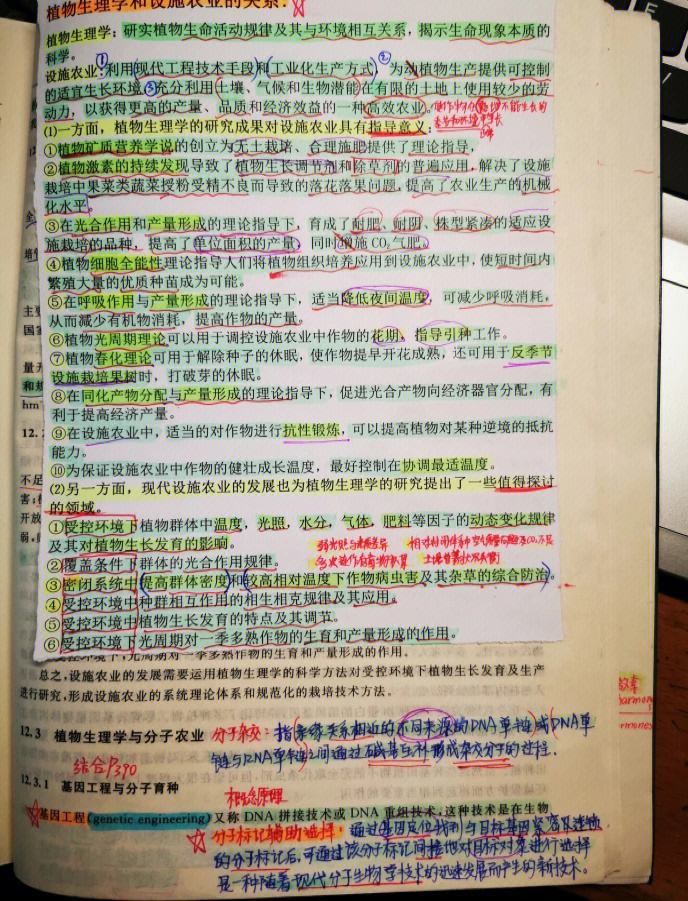 植物生理学和设施农业的关系：
植物生理学：研实植物生命活动规律及其与环境相互关系，揭示生命现象本质的
科学。
设施农业：①利用现代工程技术手段和工业化生产方式②为动植物生产提供可控制
的适宜生长环境③充分利用土壤、气候和生物潜能在有限的土地上使用较少的劳
动力，以获得更高的产量、品质和经济效益的一种高效农业。
(1)一方面，植物生理学的研究成果对设施农业具有指导意义：
①植物矿质营养学说的创立为无土栽培、合理施肥提供了理论指导，
②植物激素的持续发现导致了植物生长调节剂和除草剂的普遍应用，解决了设施
栽培中果菜类蔬菜授粉受精不良而导致的落花落果问题，提高了农业生产的机械
化水平。
③在光合作用和产量形成的理论指导下，育成了耐肥、耐阴、株型紧凑的适应设
施栽培的品种，提高了单位面积的产量，同时增施CO₂气肥。
④植物细胞全能性理论指导人们将植物组织培养应用到设施农业中，使短时间内
繁殖大量的优质种苗成为可能。
⑤在呼吸作用与产量形成的理论指导下，适当降低夜间温度，可减少呼吸消耗，
从而减少有机物消耗，提高作物的产量。
⑥植物光周期理论可以用于调控设施农业中作物的花期，指导引种工作。
⑦植物春化理论可用于解除种子的休眠，使作物提早开花成熟，还可用于反季节
设施栽培果树时，打破芽的休眠。
⑧在同化产物分配与产量形成的理论指导下，促进光合产物向经济器官分配，有
利于提高经济产量。
⑨在设施农业中，适当的对作物进行抗性锻炼，可以提高植物对某种逆境的抵抗
能力。
⑩为保证设施农业中作物的健壮成长温度，最好控制在协调最适温度。
(2)另一方面，现代设施农业的发展也为植物生理学的研究提出了一些值得探讨
的领域。
①受控环境下植物群体中温度，光照，水分，气体，肥料等因子的动态变化规律
及其对植物生长发育的影响。
②覆盖条件下群体的光合作用规律。
③密闭系统中提高群体密度和较高相对温度下作物病虫害及其杂草的综合防治。
④受控环境中种群相互作用的相生相克规律及其应用。
⑤受控环境下植物生长发育的特点及其调节。
⑥受控环境下光周期对一季多熟作物的生育和产量形成的作用。
光周期对一季多熟作物的生育和产量形成的作用。
总之，设施农业的发展需要运用植物生理学的科学方法对受控环境下植物生长发育及生产
进行研究，形成设施农业的系统理论体系和规范化的栽培技术方法。
12.3 植物生理学与分子农业
分子杂交：指亲缘关系相近的不同来源的DNA单链或DNA单
链与RNA单链之间通过碱基互补形成杂交分子的过程.
结合P390
12.3.1 基因工程与分子育种
概念原理
基因工程(genetic engineering)又称DNA拼接技术或DNA重组技术，这种技术是在生物
分子标记辅助选择：通过基因定位找到与目标基因紧密连锁
的分子标记后，可通过该分子标记间接地对目标对象进行选择
是一种随着现代分子生物学技术的迅速发展而产生的新技术。